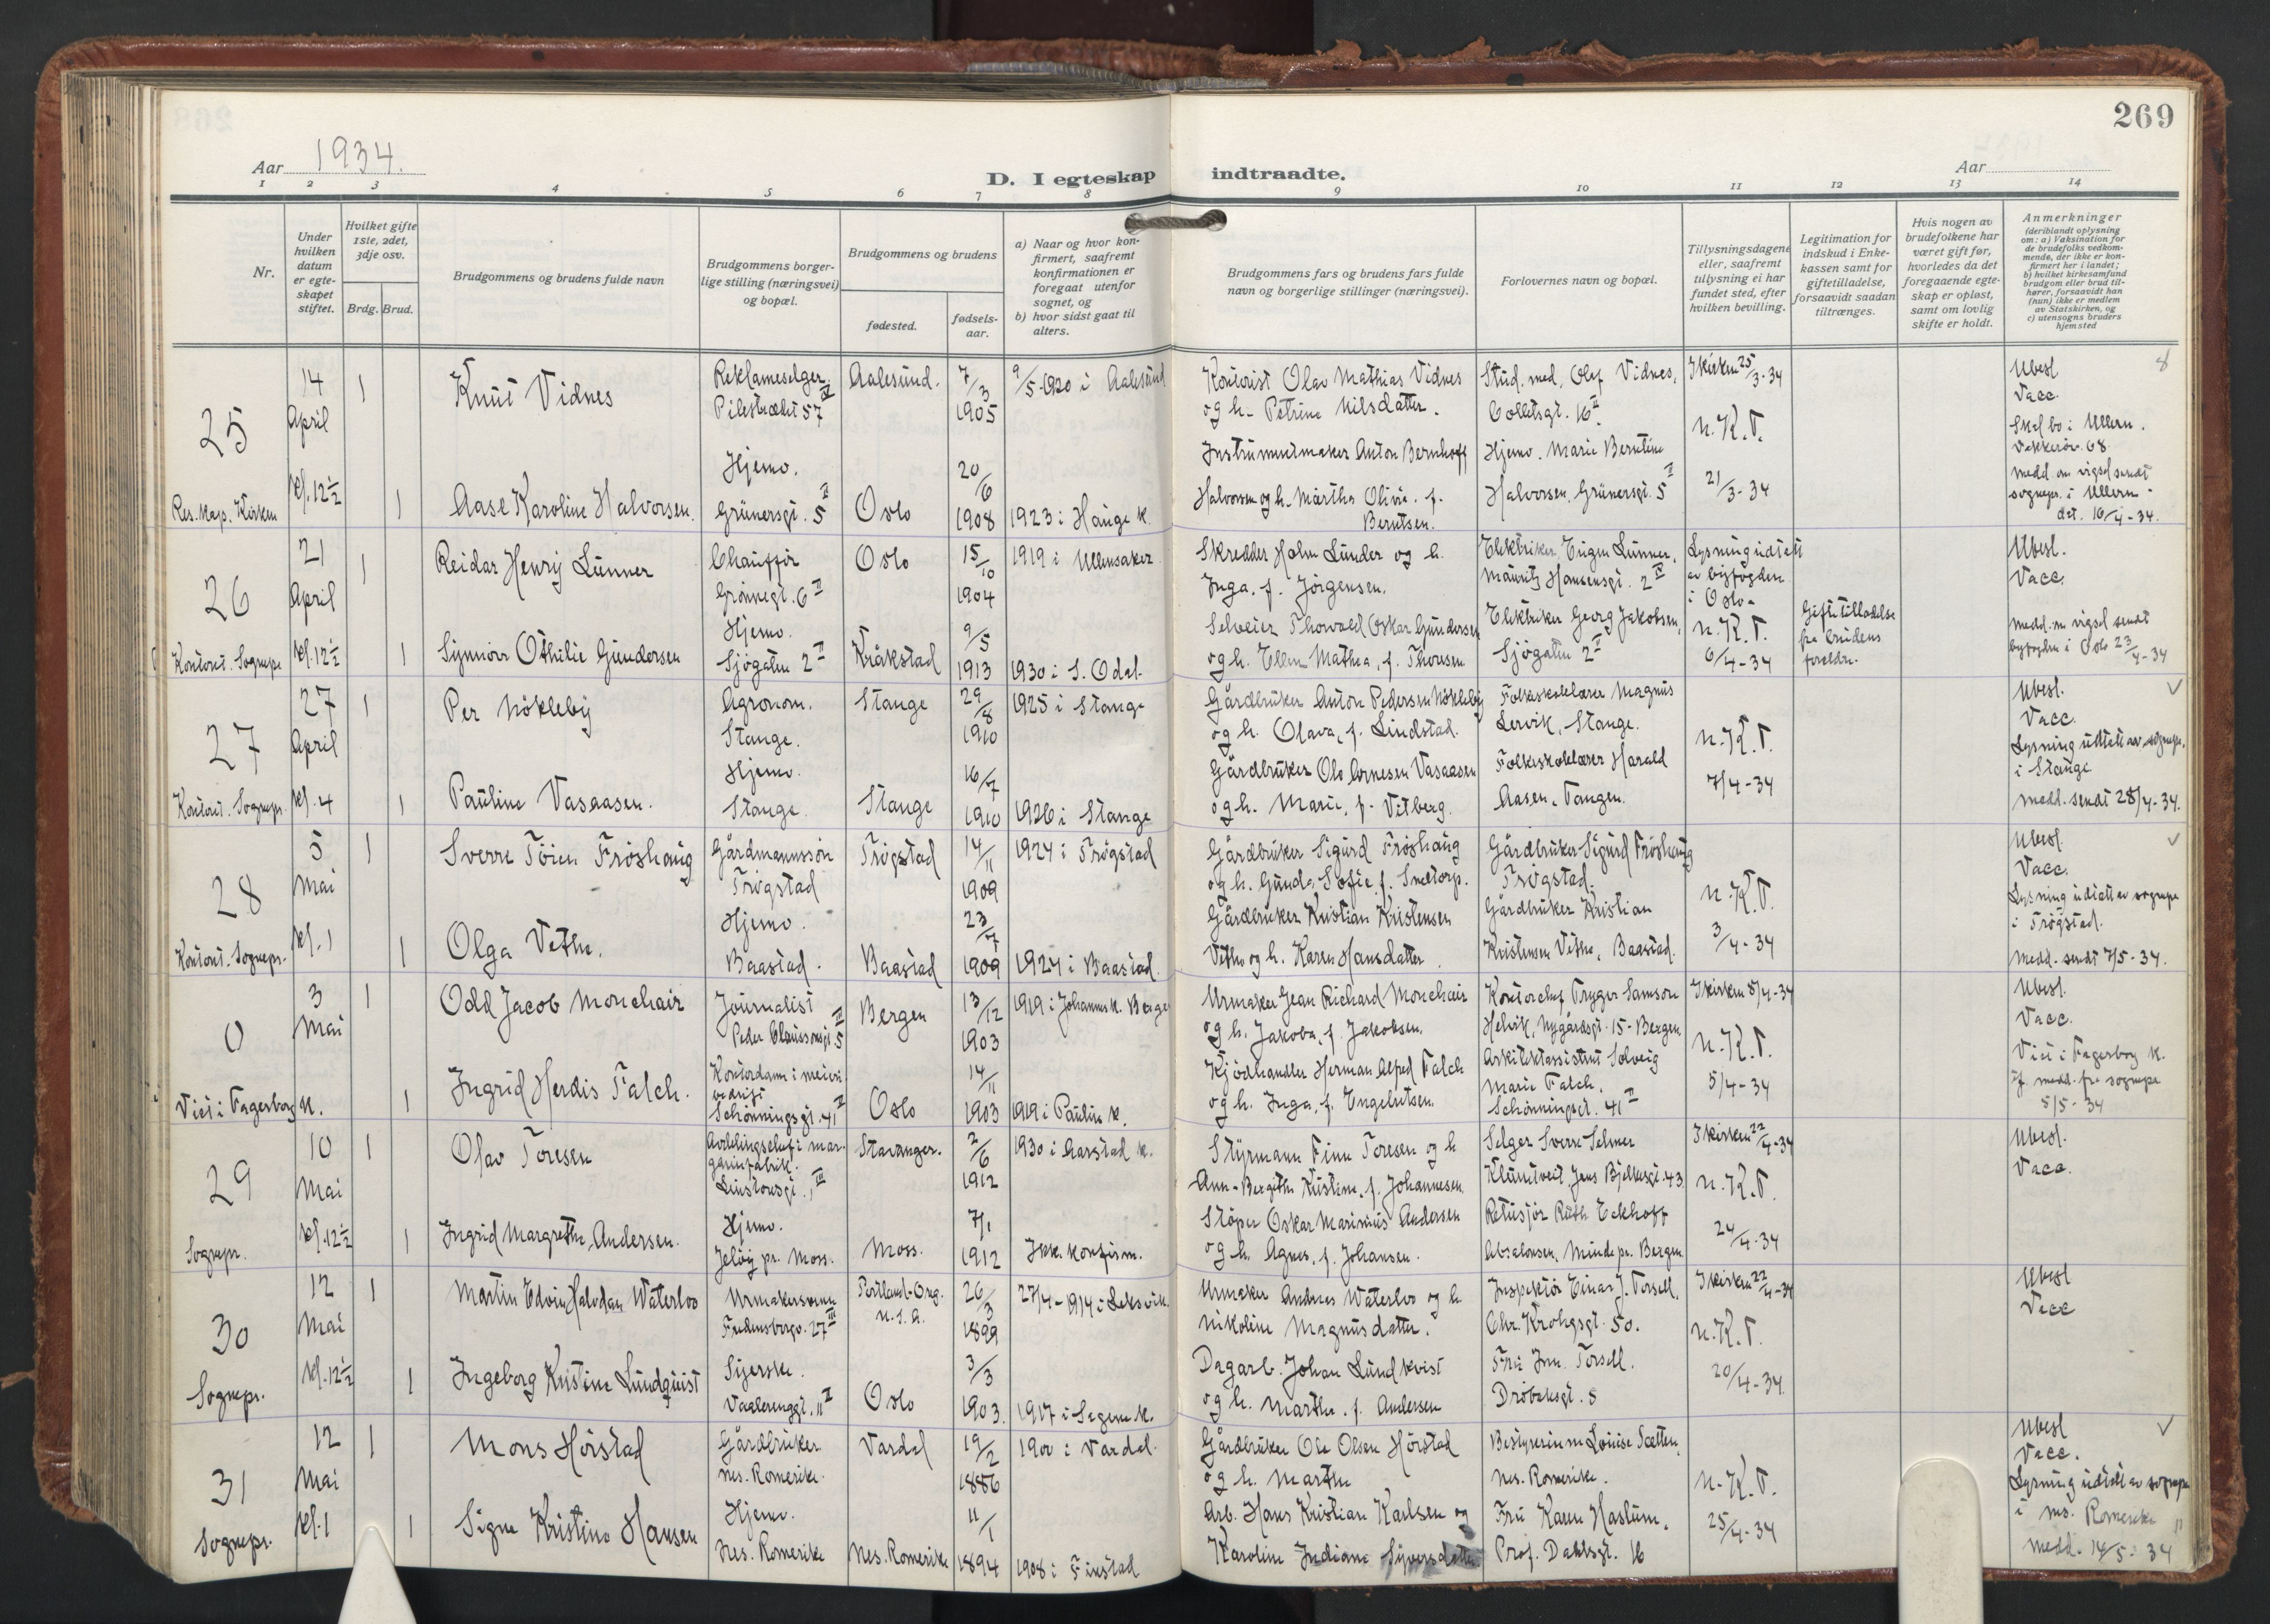 269
Aar 1934.
D. I egteskap indtraadte.
Aar
1 2 3 4 5 6 7 8 9 10 11 12 13 14
Nr.
Under hvilken datum er egteskapet stiftet.
Hvilket gifte 1ste, 2det, 3dje osv.
Brdg. Brud.
Brudgommens og brudens fulde navn
Brudgommens borgerlige stilling (næringsvei) og bopæl.
Brudgommens og brudens
fødested.
fødselsaar.
a) Naar og hvor konfirmert, saafremt konfirmationen er foregaat utenfor sognet, og
b) hvor sidst gaat til alters.
Brudgommens fars og brudens fars fulde navn og borgerlige stillinger (næringsvei).
Forlovernes navn og bopæl.
Tillysningsdagene eller, saafremt tillysning ei har fundet sted, efter hvilken bevilling.
Legitimation for indskud i Enkekassen samt for giftetilladelse, forsaavidt saadan tiltrænges.
Hvis nogen av brudefolkene har været gift før, hvorledes da det foregaaende egteskap er opløst, samt om lovlig skifte er holdt.
Anmerkninger
(deriblandt oplysning om: a) Vaksination for de brudefolks vedkommende, der ikke er konfirmert her i landet; b) hvilket kirkesamfund brudgom eller brud tilhører, forsaavidt han (hun) ikke er medlem av Statskirken, og c) utensogns bruders hjemsted
25
14 April kl. 12½
Res. kap. Kirken
1 Knut Vidnes
Reklameselger. Pilestrædet 57 IV
Aalesund.
7/3 1905
9/5-1920 i Aalesund
Kontorist Olav Mathias Vidnes og h. Petrine Nilsdatter.
Stud. med. Olaf Vidnes, Colletsgt. 16 II.
I kirken 25/3-34
N.K.T.
21/3-34
Ubesl. Vacc.
Skal bo i Ullern.
Vækkerøv. 68.
Medd. om vigsel sendt sognepr. i Ullern - det. 16/4-34.
1 Aase Karoline Halvorsen.
Hjemv. Grünersgt. 5 II
Oslo
20/6 1908
1923 i Hauge k.
Instrumentmaker Anton Bernhoff Halvorsen og h. Martha Olivia. f. Berntsen.
Hjemv. Marie Berntine Halvorsen, Grünersgt. 5 II
26
21 April kl. 12½
Kontoret. Sognepr.
1 Reidar Henrij Lunner
Chauffør Grønnegt. 6 II
Oslo
15/10 1904
1919 i Ullensaker
Skredder Holm Lunder og h. Inga, f. Jørgensen.
Elektriker Eugen Lunner, Mauritz Hansensgt. 2 IV
Lysning utstett av byfogden i Oslo.
N.K.T.
6/4-34
Giftetilladelse fra brudens foreldre.
Ubesl. Vacc.
Medd. om vigsel sendt byfogden i Oslo 23/4-34
1 Synnøve Othilie Gundersen
Hjemv. Sjøgaten 2 II
Kråkstad
9/5 1913
1930 i S. Odal.
Selveier Thorvald Oskar Gundersen og h. Ellen Mathea, f. Thoresen
Elektriker Georg Jakobsen, Sjøgaten 2 II
27
27 April kl. 4
Kontoret. Sognepr.
1 Per Nökleby
Agronom. Stange.
Stange
29/8 1910
1925 i Stange
Gårdbruker Anton Pedersen Nökleby og h. Olava, f. Lindstad.
Folkeskolelærer Magnus Lervik, Stange.
N.K.T.
7/4-34
Ubesl. Vacc.
Lysning utstett av sognepr. i Stange
Medd. sendt 28/4-34.
1 Pauline Vasaasen.
Hjemv. Stange.
Stange
16/7 1910
1926 i Stange
Gårdbruker Ole Arnesen Vasaasen og h. Marie, f. Vitberg.
Folkeskolelærer Harald Aasen, Tangen.
28
5 Mai kl. 1
Kontoret. Sognepr.
1 Sverre Töien Fröshaug
Gårdmannssön Trögstad
Trögstad
14/11 1909
1924 i Trögstad
Gårdbruker Sigurd Fröshaug og h. Gunda Sofie f. Sneltorp.
Gårdbruker Sigurd Fröshaug Trögstad.
N.K.T.
3/4-34
Ubesl. Vacc.
Lysning utstett av sognepr. i Trögstad.
Medd. sendt 7/5-34.
1 Olga Vethe.
Hjemv. Baastad.
Baastad
23/7 1909
1924 i Baastad.
Gårdbruker Kristian Kristensen Vethe og h. Karen Hansdatter.
Gårdbruker Kristian Kristensen Vethe, Baastad.
0
3 Mai
Viet i Fagerborg k.
1 Odd Jacob Monchair
Journalist Peder Claussönsgt. 5 II
Bergen
13/12 1903
1919 i Johannes k. Bergen
Urmaker Jean Richard Monchair og h. Jakoba, f. Jakobsen.
Kontorchef Trygve Samson Helvik, Nygårdsgt. 15 - Bergen.
I kirken 8/4-34
N.K.T.
5/4-34
Ubesl. Vacc.
Viet i Fagerborg k. if. medd. fra sognepr. 5/5-34
1 Ingrid Herdis Falch.
Kontordame i meieribedrift Schönningsgt. 41 II
Oslo
14/11 1903
1919 i Paulus k.
Kjödhandler Herman Alfred Falch og h. Inga, f. Engebretsen.
Arkitektassistent Solveig Marie Falch. Schönningsgt. 41 II
29
10 Mai kl. 12½
Sognepr.
1 Olav Toresen
Avdelingschef i margarinfabrik. Linstowsgt. 1 III
Stavanger.
2/6 1912
1930 i Aarstad k.
Styrmann Finn Toresen og h. Ann-Bergithe Kristine, f. Johannesen.
Selger Sverre Selmer Klæntveit, Jens Bjelkesgt. 43
I kirken 22/4-34
N.K.T.
24/4-34
Ubesl. Vacc.
1 Ingrid Margrethe Andersen.
Hjemv. Jelöy pr. Moss.
Moss.
7/1 1912
Ikke konfirm.
Stöper Oskar Marinius Andersen og h. Agnes, f. Johansen.
Retusjör Ruth Eckhoff Absalonsen, Minde pr. Bergen
30
12 Mai kl. 12½
Sognepr.
1 Martin Edvin Halvdan Waterloo
Urmakersvenn Fredensborgv. 27 III
Portland-Oreg. U.S.A.
26/3 1899
27/4-1914 i Leksvik.
Urmaker Andreas Waterloo og h. Nikoline Magnusdatter.
Inspektör Einar J. Torsell, Chr. Krohgsgt. 50.
I kirken 22/4-34
N.K.T.
20/4-34.
Ubesl Vacc
1 Ingeborg Kristine Lundquist
Syerske. Vaalerenggt. 11 II
Oslo
3/3 1903.
1917 i Sagene k.
Dagarb. Johan Lundkvist og h. Marthe. f. Andersen
Fru Torsell. Dröbaksgt. 5
31
12 Mai kl. 1
Sognepr.
1 Mons Hörstad
Gårdbruker Nes. Romerike.
Vardal
19/2 1886
1900 i Vardal.
Gårdbruker Ole Olsen Hörstad og h. Marthe
Bestyrerinne Louise Sætten, Nes. Romerike.
N.K.T.
25/4-34
Ubesl Vacc.
Lysning utstett av sognepr. i Nes. Romerike
Medd. 14/5-34
1 Signe Kristine Hansen
Hjemv. Nes. Romerike
Nes. Romerike
11/1 1894
1908 i Finstad
Arb. Hans Kristian Karlsen og Karoline Indiane Syversdatter.
Fru Karen Haslum, Prof. Dahlsgt. 16